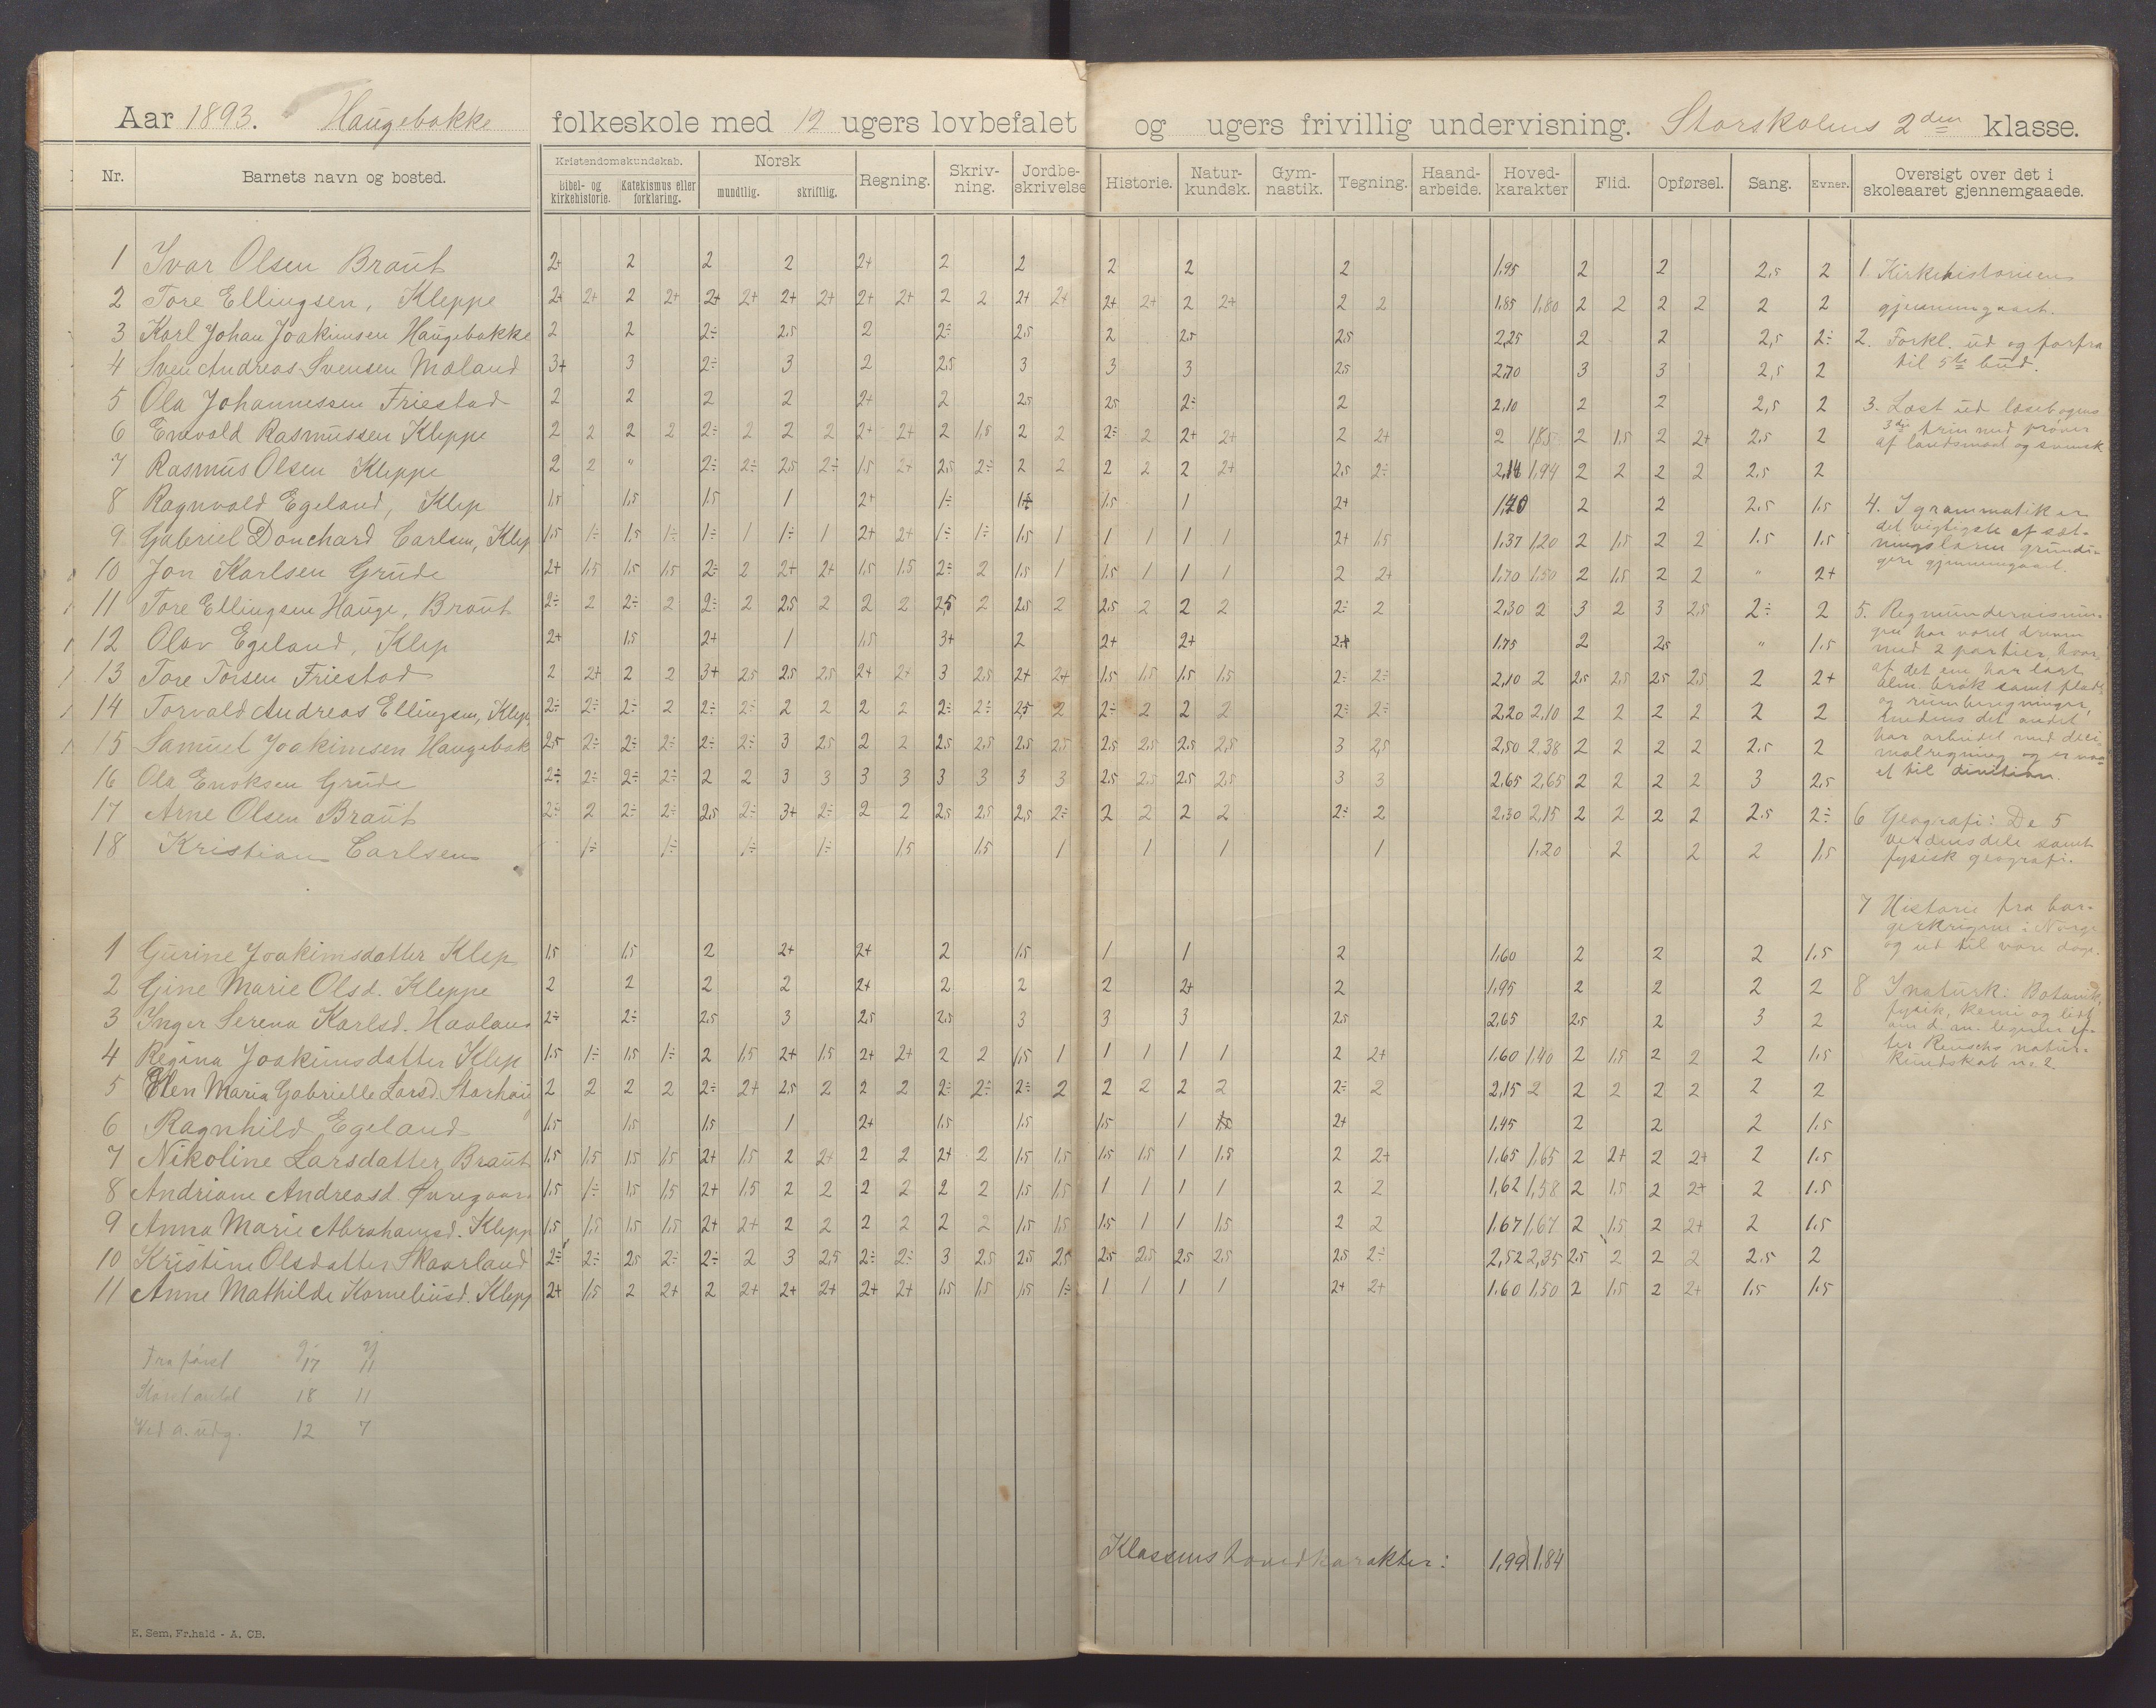 Aar 1893. Haugebakke folkeskole med 12 ugers lovbefalet og ugers frivillig undervisning. Storskolens 2den klasse.
Nr. Barnets navn og bosted. Kristendomskundskab. Norsk Regning. Skriv- Jordbe- Historie. Natur- Gym- Tegning. Haand- Hoved- Flid. Opførsel. Sang. Evner. Oversigt over det i
bibel- og Katekismus eller mundtlig. skriftlig. ning. skrivelse kundsk. nastik. arbeide. karakter skoleaaret gjennemgaaede.
kirkehistorie. forklaring.
1 Ivar Olsen Braut 2+ 2 2 2 2+ 2 2 2 2 2 1,95 2 2 2,5 2
2 Tore Ellingsen, Kleppe 2+ 2+ 2 2+ 2+ 2+ 2+ 2+ 2+ 2+ 2 2 2+ 2+ 2+ 2+ 2 2+ 2 2 1,85 1,80 2 2 2 2 2 2
3 Karl Johan Joakimsen Haugebakke 2 2 2÷ 2,5 2 2÷ 2,5 2 2,5 2,5 2,25 2 2 2,5 2÷
4 Sven Andreas Svensen Mæland 3+ 3 2÷ 3 2 2,5 3 3 3 2,5 2,70 3 3 2,5 2
5 Ola Johannessen Friestad 2 2 2 2 2+ 2 2,5 2,5 2÷ 2 2,10 2 2 2,5 2
6 Enevold Rasmussen Kleppe 2 2 2 2 2÷ 2 2 2 2+ 2+ 2 1,5 2 2 2÷ 2 2+ 2+ 2 2+ 2 1,85 2 1,5 2 2+ 2,5 2
7 Rasmus Olsen Kleppe 2 2 " 2÷ 2÷ 2,5 2÷ 1,5 2+ 2,5 2÷ 2 2 2 2 2 2+ 2,5 2÷ 1,94 2 2 2 2 2,5 2
8 Ragnvald Egeland, Klep 1,5 1,5 1,5 1 2+ 1÷ 1,5 1 2+ 2 2 2,5 1,5
9 Gabriel Donchard Carlsen, Klep 1,5 1÷ 1,5 1÷ 1÷ 1 1÷ 1 2+ 2+ 1÷ 1÷ 1,5 1 1 1 1 1 2+ 1,5 1,37 1,20 2 1,5 2 2 1,5 1,5
10 Jon Karlsen Grude 2+ 1,5 1,5 1,5 2÷ 2 2+ 2+ 1,5 1,5 2÷ 2 1,5 1 1,5 1 1 1 2 2+ 1,70 1,50 2 1,5 2 2 " 2+
11 Tore Ellingsen Hauge, Braut 2÷ 2 2÷ 2 2÷ 2 2,5 2 2 2 2,5 2 2,5 2 2,5 2 2 2 2÷ 2 2,30 2 3 2 3 2,5 2÷ 2
12 Olav Egeland, Klep 2+ 1,5 2+ 1 1,5 3+ 2 2+ 2+ 1,75 2 2,5 " 1,5
13 Tore Torsen Friestad 2 2+ 2 2 3+ 2,5 2,5 2,5 2+ 2+ 3 2,5 2+ 2+ 1,5 1,5 1,5 1,5 2÷ 2÷ 2,10 2 2,5 2,5 2,5 2,5 2 2+
14 Torvald Andreas Ellingsen, Klep 2÷ 2÷ 2÷ 2 2÷ 2÷ 2 2 2 2 2÷ 2÷ 2,5 2 2÷ 2 2 2 2÷ 2÷ 2,20 2,10 2 2 2 2 2 2
15 Samuel Joakimsen Haugebak 2,5 2÷ 2÷ 2÷ 2÷ 2÷ 3 2,5 2 2 2,5 2,5 2,5 2,5 2,5 2,5 2,5 2,5 3 2,5 2,50 2,38 2 2 2 2 2,5 2
16 Ola Enoksen Grude 2÷ 2÷ 2÷ 2÷ 2 2 3 3 3 3 3 3 3 3 2,5 2,5 2,5 2,5 3 3 2,65 2,65 2 2 2 2 3 2,5
17 Arne Olsen Braut 2÷ 2 2÷ 2÷ 2,5 2÷ 3+ 2÷ 2 2 2,5 2,5 2,5 2÷ 2 2 2 2 2÷ 2 2,30 2,15 2 2 2 2 2,5 2÷
18 Kristian Carlsen 1÷ 1÷ 1÷ 1÷ 1,5 1,5 1 1 1 1 1,20 2 2 2 1,5
1 Gurine Joakimsdatter Klep 1,5 1,5 2 2+ 2+ 2 1,5 1 1 2 1,60 2 2 2 1,5
2 Gine Marie Olsd. Kleppe 2 2 2 2 2+ 2 2 2 2+ 2 1,95 2 2 2 2
3 Inger Serena Karlsd. 2÷ 2÷ 2,5 3 2,5 2,5 3 3 3 2,5 2,65 2,5 2 3 2
4 Regina Joakimsdatter Klep 1,5 1÷ 1,5 1÷ 2 1,5 2+ 1,5 2+ 2+ 2 2 1,5 1 1 1 1 1 2 2+ 1,60 1,40 2 1,5 2 2 2 1,5
5 Elen Maria Gabrielle Larsd. Storhaug 2 2 2 2 2÷ 2+ 2,5 2 2 2 2÷ 2÷ 2÷ 2 2 2 2 2 2÷ 2 2,15 2 2 2 2 2 2 2
6 Ragnhild Egeland 1,5 1,5 1,5 1 2+ 1,5 1,5 1,5 1 1,5 2+ 1,45 2 2 2 1,5
7 Nikoline Larsdatter Braut 1,5 1,5 1,5 1,5 2+ 1,5 2 2+ 2 2 2+ 2 1,5 1,5 1,5 1,5 1 1,5 2 2+ 1,65 1,65 2 2+ 2 2+ 2 1,5
8 Andriane Andreasd. 1,5 1÷ 1,5 1,5 2+ 1,5 2 2 2 2 2 2 1,5 1,5 1 1 1 1 2 2 1,62 1,58 2 1,5 2 2+ 2 1,5
9 Anna Marie Abrahamsd. Klepp 1,5 1,5 1,5 1,5 2+ 2+ 2 2 2 2 2 2 1,5 1,5 1,5 1 1 1,5 2 2 1,67 1,67 2 1,5 2 2+ 2 1,5
10 Kristine Olsdatter Skaarland 2÷ 2÷ 2,5 2÷ 2÷ 2 3 2,5 2÷ 2÷ 3 2,5 2,5 2,5 2,5 2,5 2,5 2,5 2,5 2÷ 2,52 2,35 2,5 2 2 2 2,5 2
11 Anne Mathilde Korneliusd. Klepp 2+ 1,5 2 2+ 2 2+ 2+ 2+ 2+ 2+ 1,5 1,5 1,5 1÷ 1 1 1 1 2+ 2+ 1,60 1,50 2 1,5 2 2+ 1,5 1,5
Fra først 17 11
18 11
Ved a. udg. 12 7
Klassens hovedkarakter: 1,99 1,84
E. Sem, Fr.hald - A. CB.
1 Kirkehistorien
gjennemgaaet.
2. Forkl. ud og forfra
til 5te bud.
3. Læst ud læsebogens
3die trin med prøver
af landsmaal og svensk
4. I grammatik er
det vigtigste af sæt-
ningslæren grundi-
gere gjennemgaaet.
5. Regneundervisnin-
gen har været dreven
med 2 partier, hvor-
af det ene har lært
alm. brøk samt flade
og rumberegninger,
medens det andet
har arbeidet med deci-
malregning og er naa-
et til division.
6 Geografi: De 5
verdensdele samt
fysisk geografi.
7 Historie fra bor-
gerkrigene i Norge
og ud til vore dage.
8 I natursk: Botanik,
fysik, kemi og lidt
om d. m. legeme ef-
ter Reuschs natur-
kundskab n. 2.